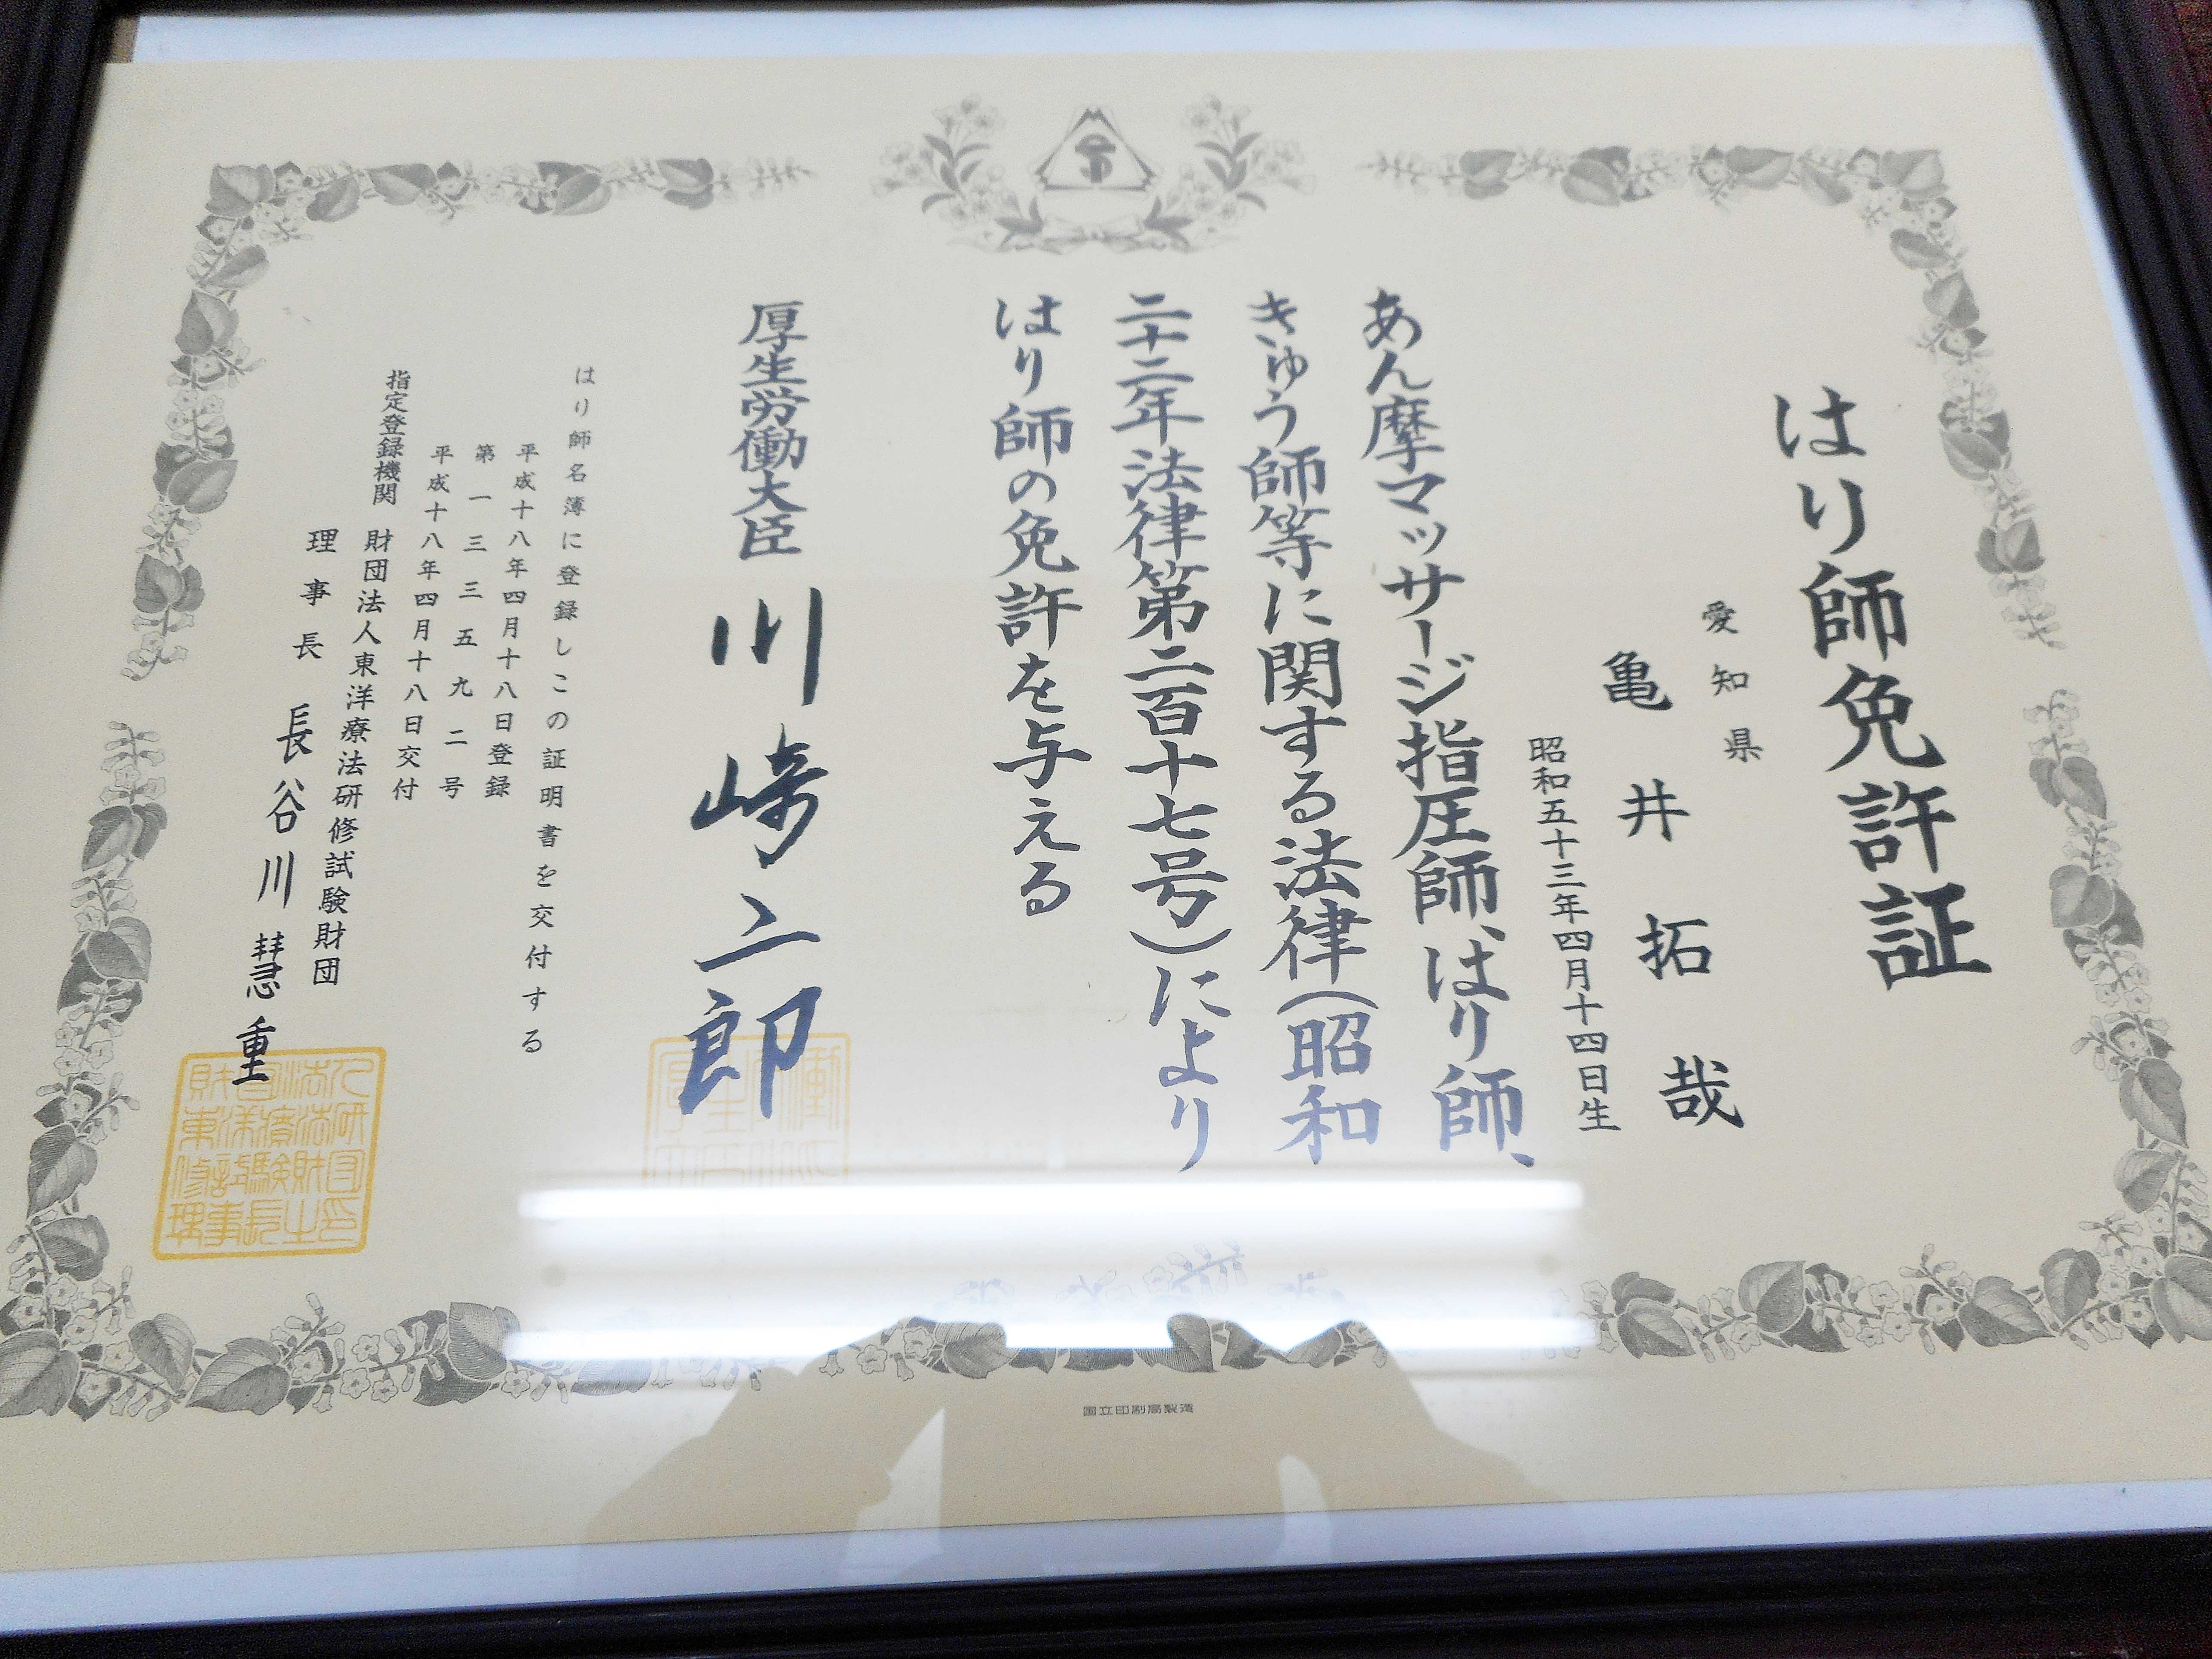 はり師免許証
愛知県
亀井拓哉
昭和五十三年四月十四日生
あん摩マッサージ指圧師、はり師、
きゅう師等に関する法律(昭和
二十二年法律第二百十七号)により
はり師の免許を与える
厚生労働大臣 川崎二郎
はり師名簿に登録しこの証明書を交付する
平成十八年四月十八日登録
第一三三五九二号
平成十八年四月十八日交付
指定登録機関 財団法人東洋療法研修試験財団
理事長 長谷川慧重
国立印刷局製造